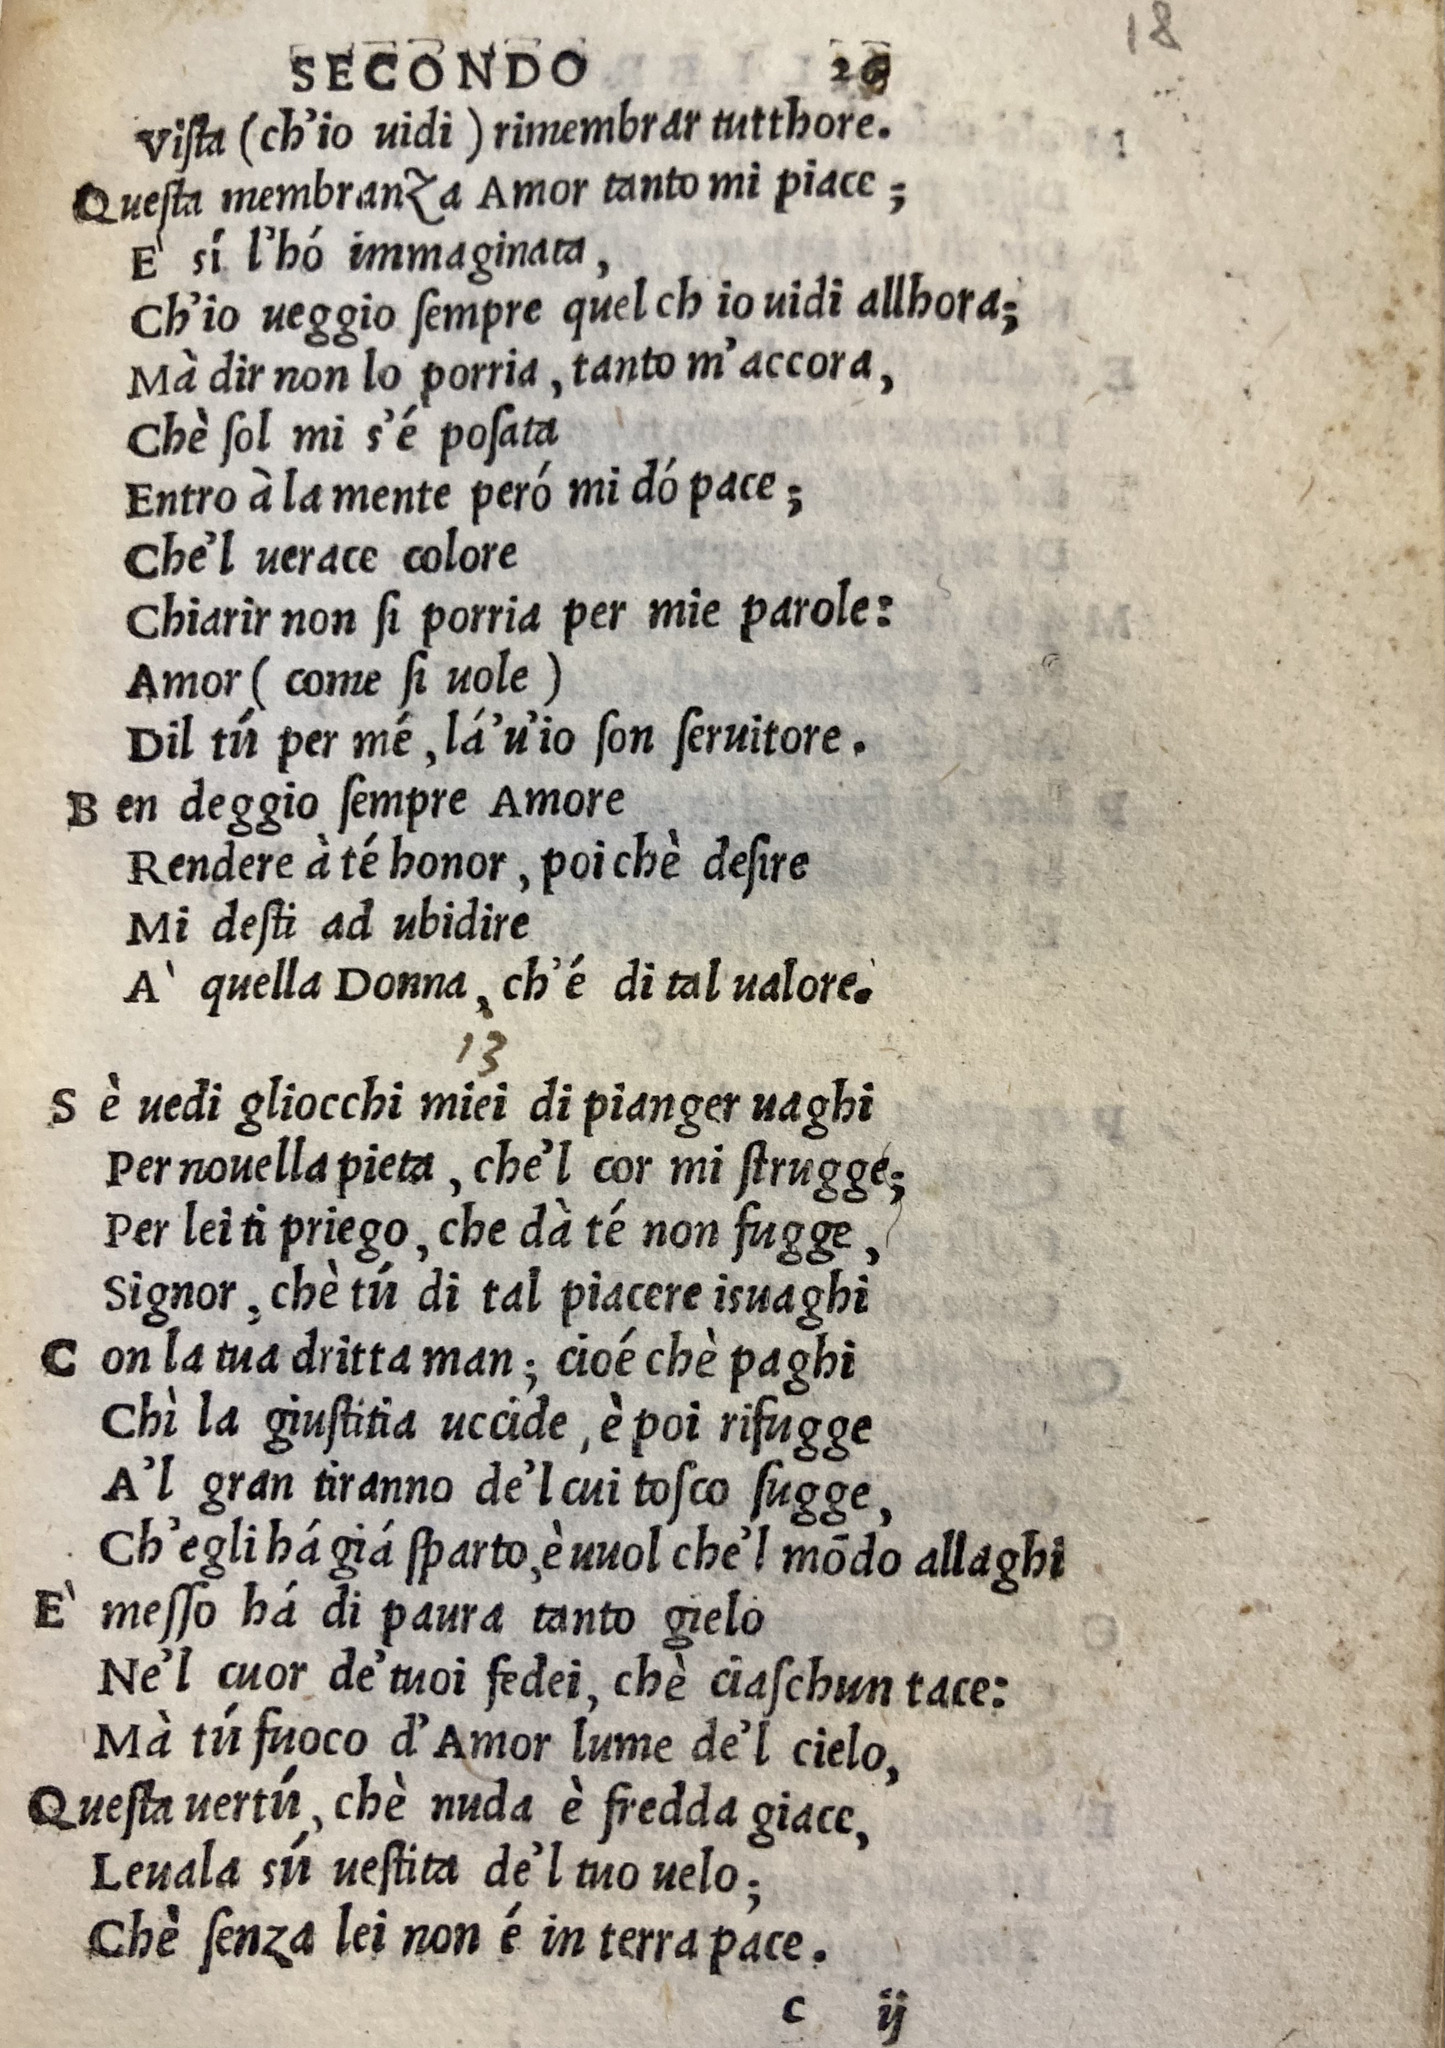 18
SECONDO
Viſta (ch'io uidi) rimembrar tutthore.
Queſta membranza Amor tanto mi piace;
E' sí l'hó immaginata,
Ch'io ueggio ſempre quel ch io uidi allhora;
Mà dir non lo porria, tanto m'accora,
Chè ſol mi s'é poſata
Entro à la mente peró mi dó pace;
Che'l uerace colore
Chiarir non ſi porria per mie parole:
Amor (come ſi uole)
Dil tú per mé, lá'u'io ſon ſeruitore.
B en deggio ſempre Amore
Rendere à té honor, poi chè deſire
Mi deſti ad ubidire
A' quella Donna, ch'é di tal ualore.
13
S è uedi gliocchi miei di pianger uaghi
Per nouella pieta, che'l cor mi ſtrugge;
Per lei ti priego, che dà té non fugge,
Signor, chè tú di tal piacere isuaghi
C on la tua dritta man; cioé chè paghi
Chì la giuſtitia uccide, è poi rifugge
A'l gran tiranno de'l cui toſco ſugge,
Ch'egli há giá ſparto, è uuol che'l mōdo allaghi
E' meſſo há di paura tanto gielo
Ne'l cuor de'tuoi fedei, chè ciaſchun tace:
Mà tú fuoco d'Amor lume de'l cielo,
Queſta uertú, chè nuda è fredda giace,
Leuala sú ueſtita de'l tuo uelo;
Chè ſenza lei non é in terra pace.
c ij